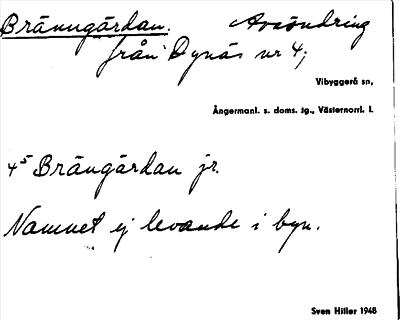 Bränngårdan. Avsöndring
från Dynäs nr 4;
Vibyggerå sn,
Ångermanl. s. doms. tg., Västernorrl. l.
4⁵ Brängårdan jr.
Namnet ej levande i byn.
Sven Hiller 1948